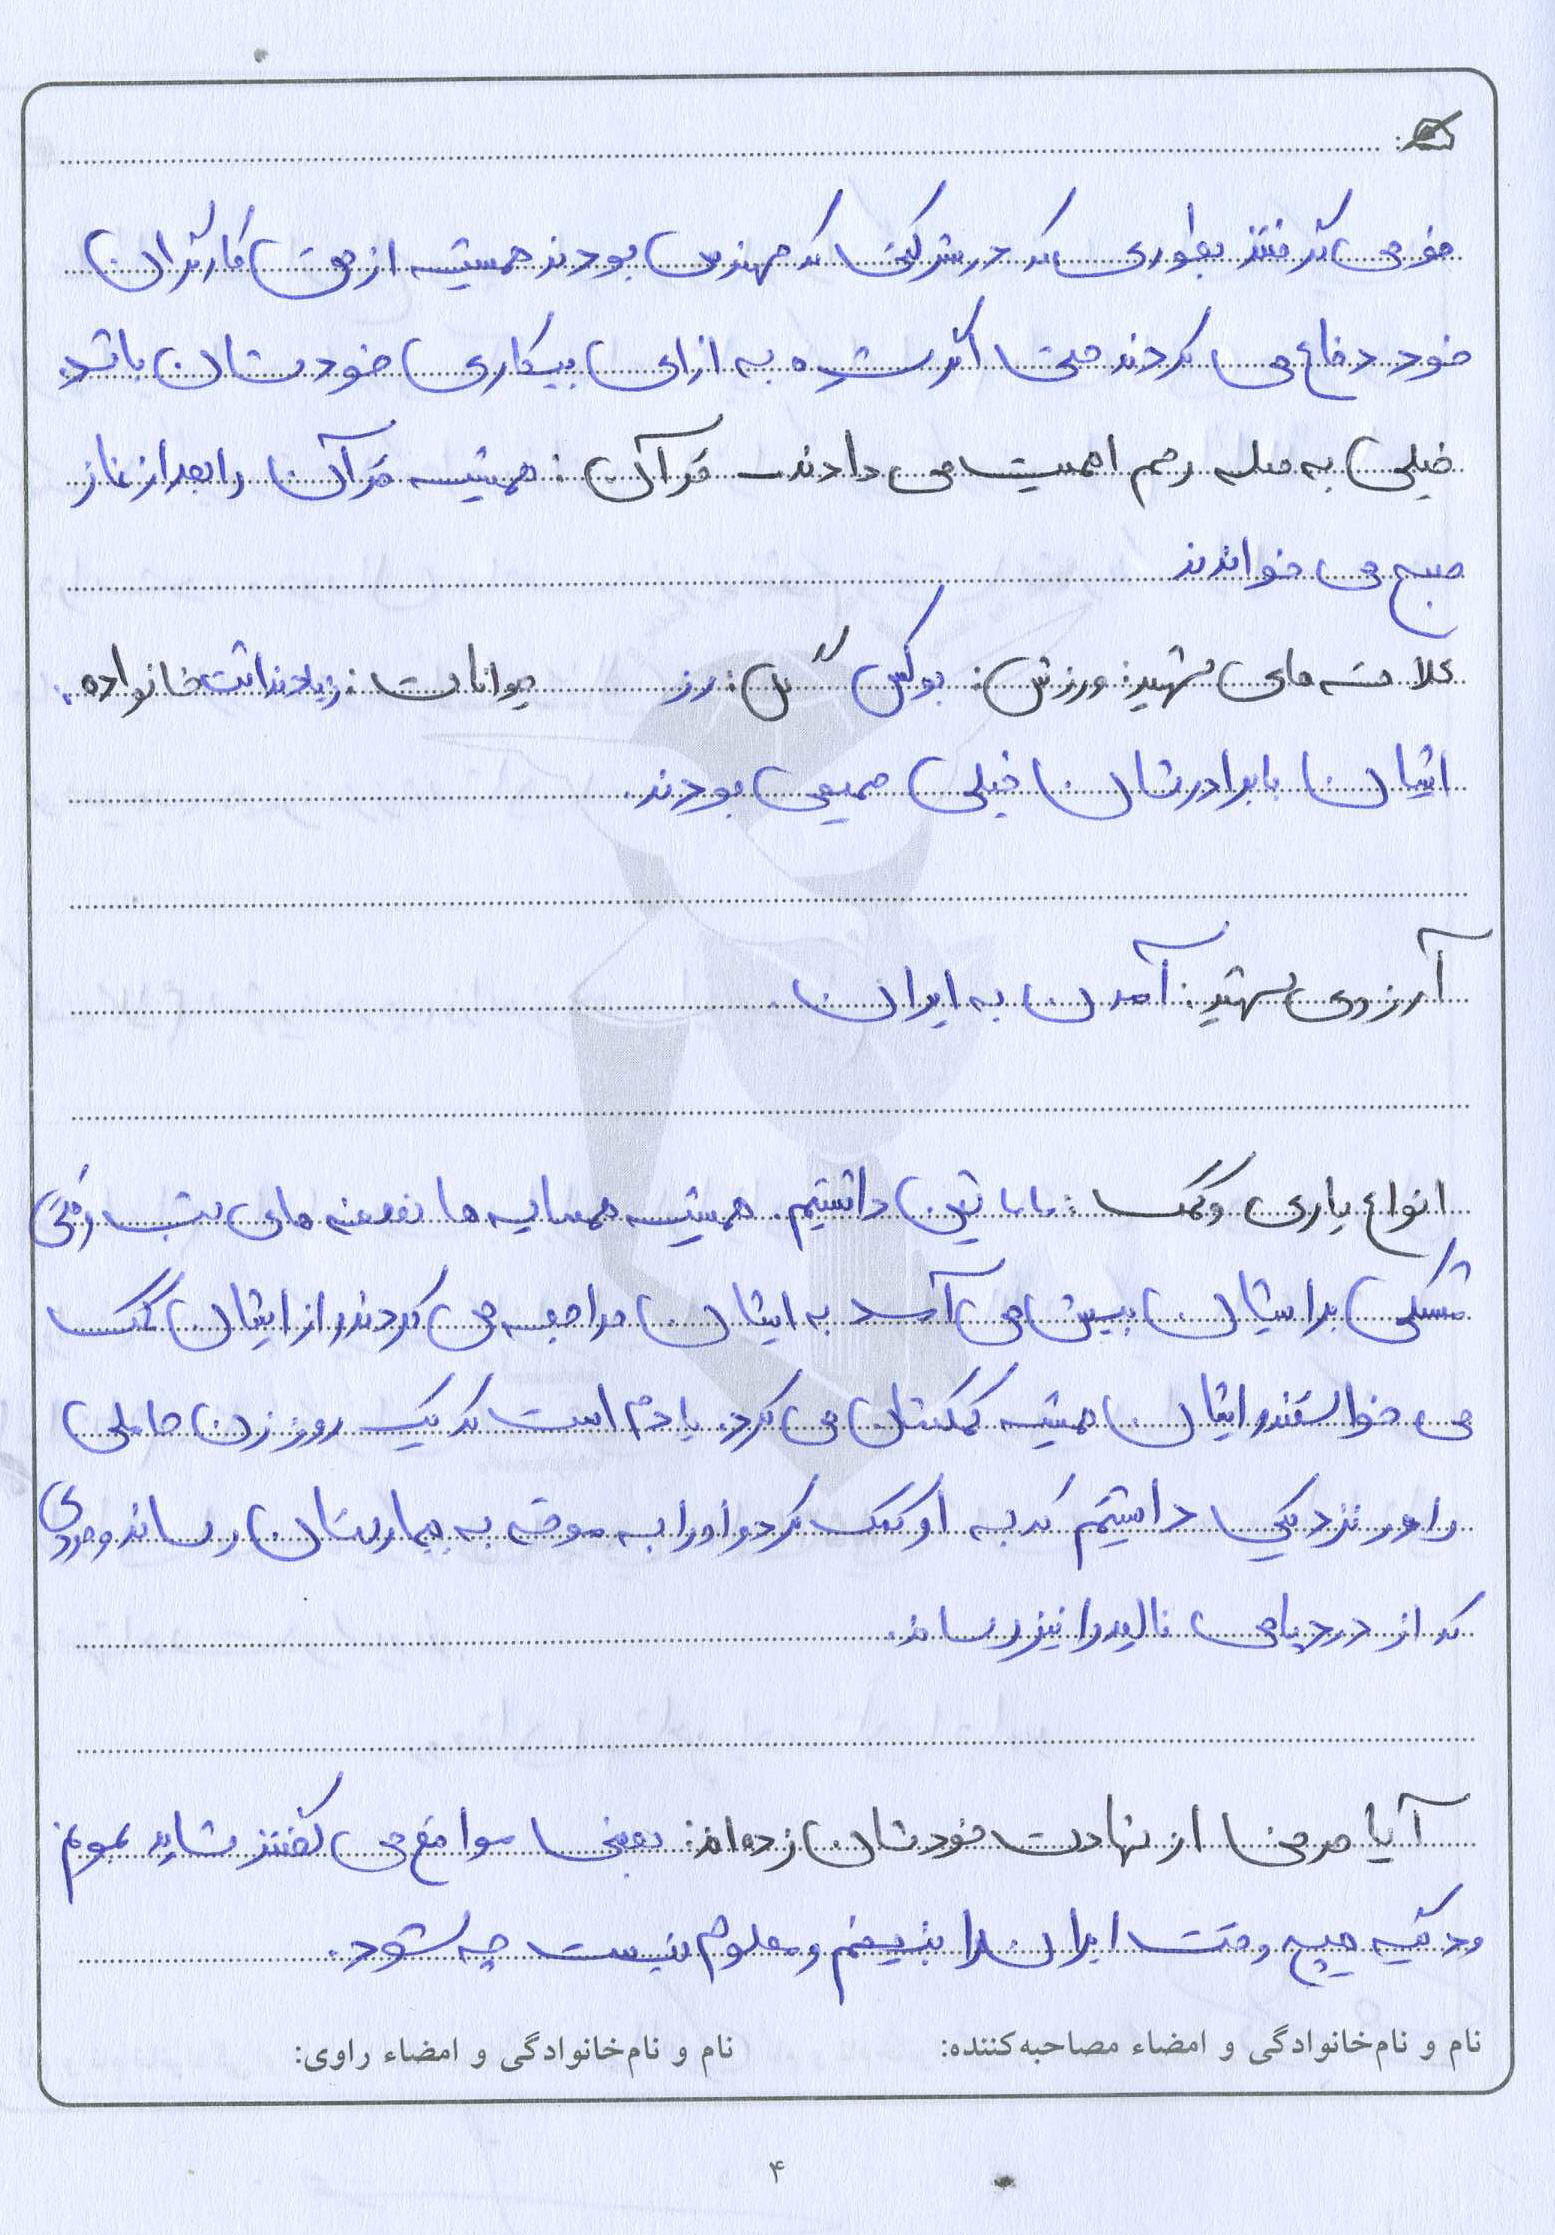 می گرفتند بطوری که در شرکتی که مهندس بودند همیشه از حق کارگران
خود دفاع می کردند حتی اگر شده به ازای بیکاری خودشان باشد.
خیلی به صله رحم اهمیت می دادند. قرآن: همیشه قرآن را بعد از نماز
صبح می خواندند
علاقه های شهید: ورزش: بوکس گل: رز حیوانات: زیاد نداشت خانواده:
ایشان با برادرشان خیلی صمیمی بودند.
آرزوی شهید: آمدن به ایران.
انواع یاری و کمک: ماشین داشتیم. همیشه همسایه ها نصفه های شب وقتی
مشکلی براشان پیش می آمد به ایشان مراجعه می کردند و از ایشان کمک
می خواستند و ایشان همیشه کمکشان می کرد. یادم است که یک روز زن حاملی
را در نزدیکی داشتیم که به او کمک کرد و او را به موقع به بیمارستان رساند و مردی
که از درد پا می نالید را نیز رساند.
آیا حرفی از شهادت خودشان زده اند: بعضی مواقع می گفتند شاید بمیرم
و دیگه هیچ وقت ایران را نبینم و معلوم نیست چه شود.
نام و نام‌خانوادگی و امضاء مصاحبه‌کننده: نام و نام‌خانوادگی و امضاء راوی:
۴